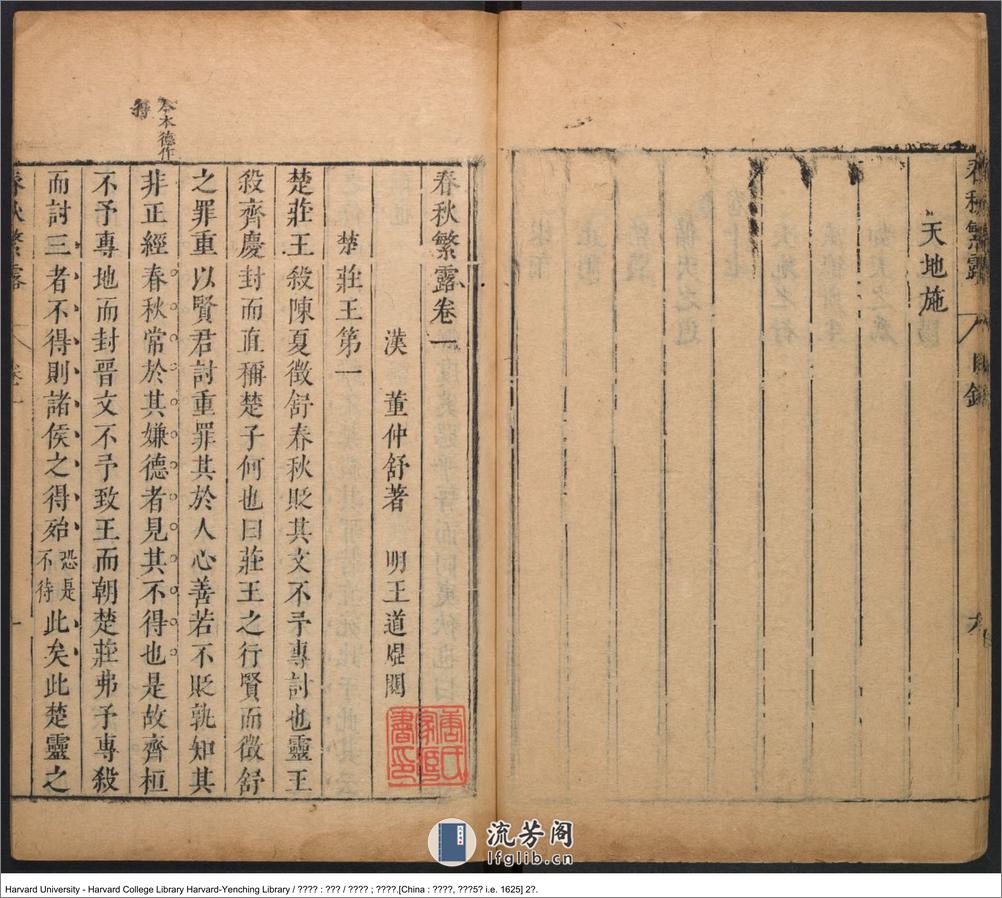 春秋繁露
目錄
天地施
春秋繁露卷一
漢 董仲舒著 明王道焜閱
楚莊王第一
楚莊王殺陳夏徵舒春秋貶其文不予專討也靈王
殺齊慶封而直稱楚子何也曰莊王之行賢而徵舒
之罪重以賢君討重罪其於人心善若不貶孰知其
非正經春秋常於其嫌德者見其不得也是故齊桓
不予專地而封晉文不予致王而朝楚莊弗予專殺
而討三者不得則諸侯之得殆恐是不待此矣此楚靈之
春秋繁露
卷一
一
本德作
流芳阁
lfglib.cn
Harvard University - Harvard College Library Harvard-Yenching Library / ???? : ??? / ???? ; ????.[China : ????, ???5? i.e. 1625] 2?.